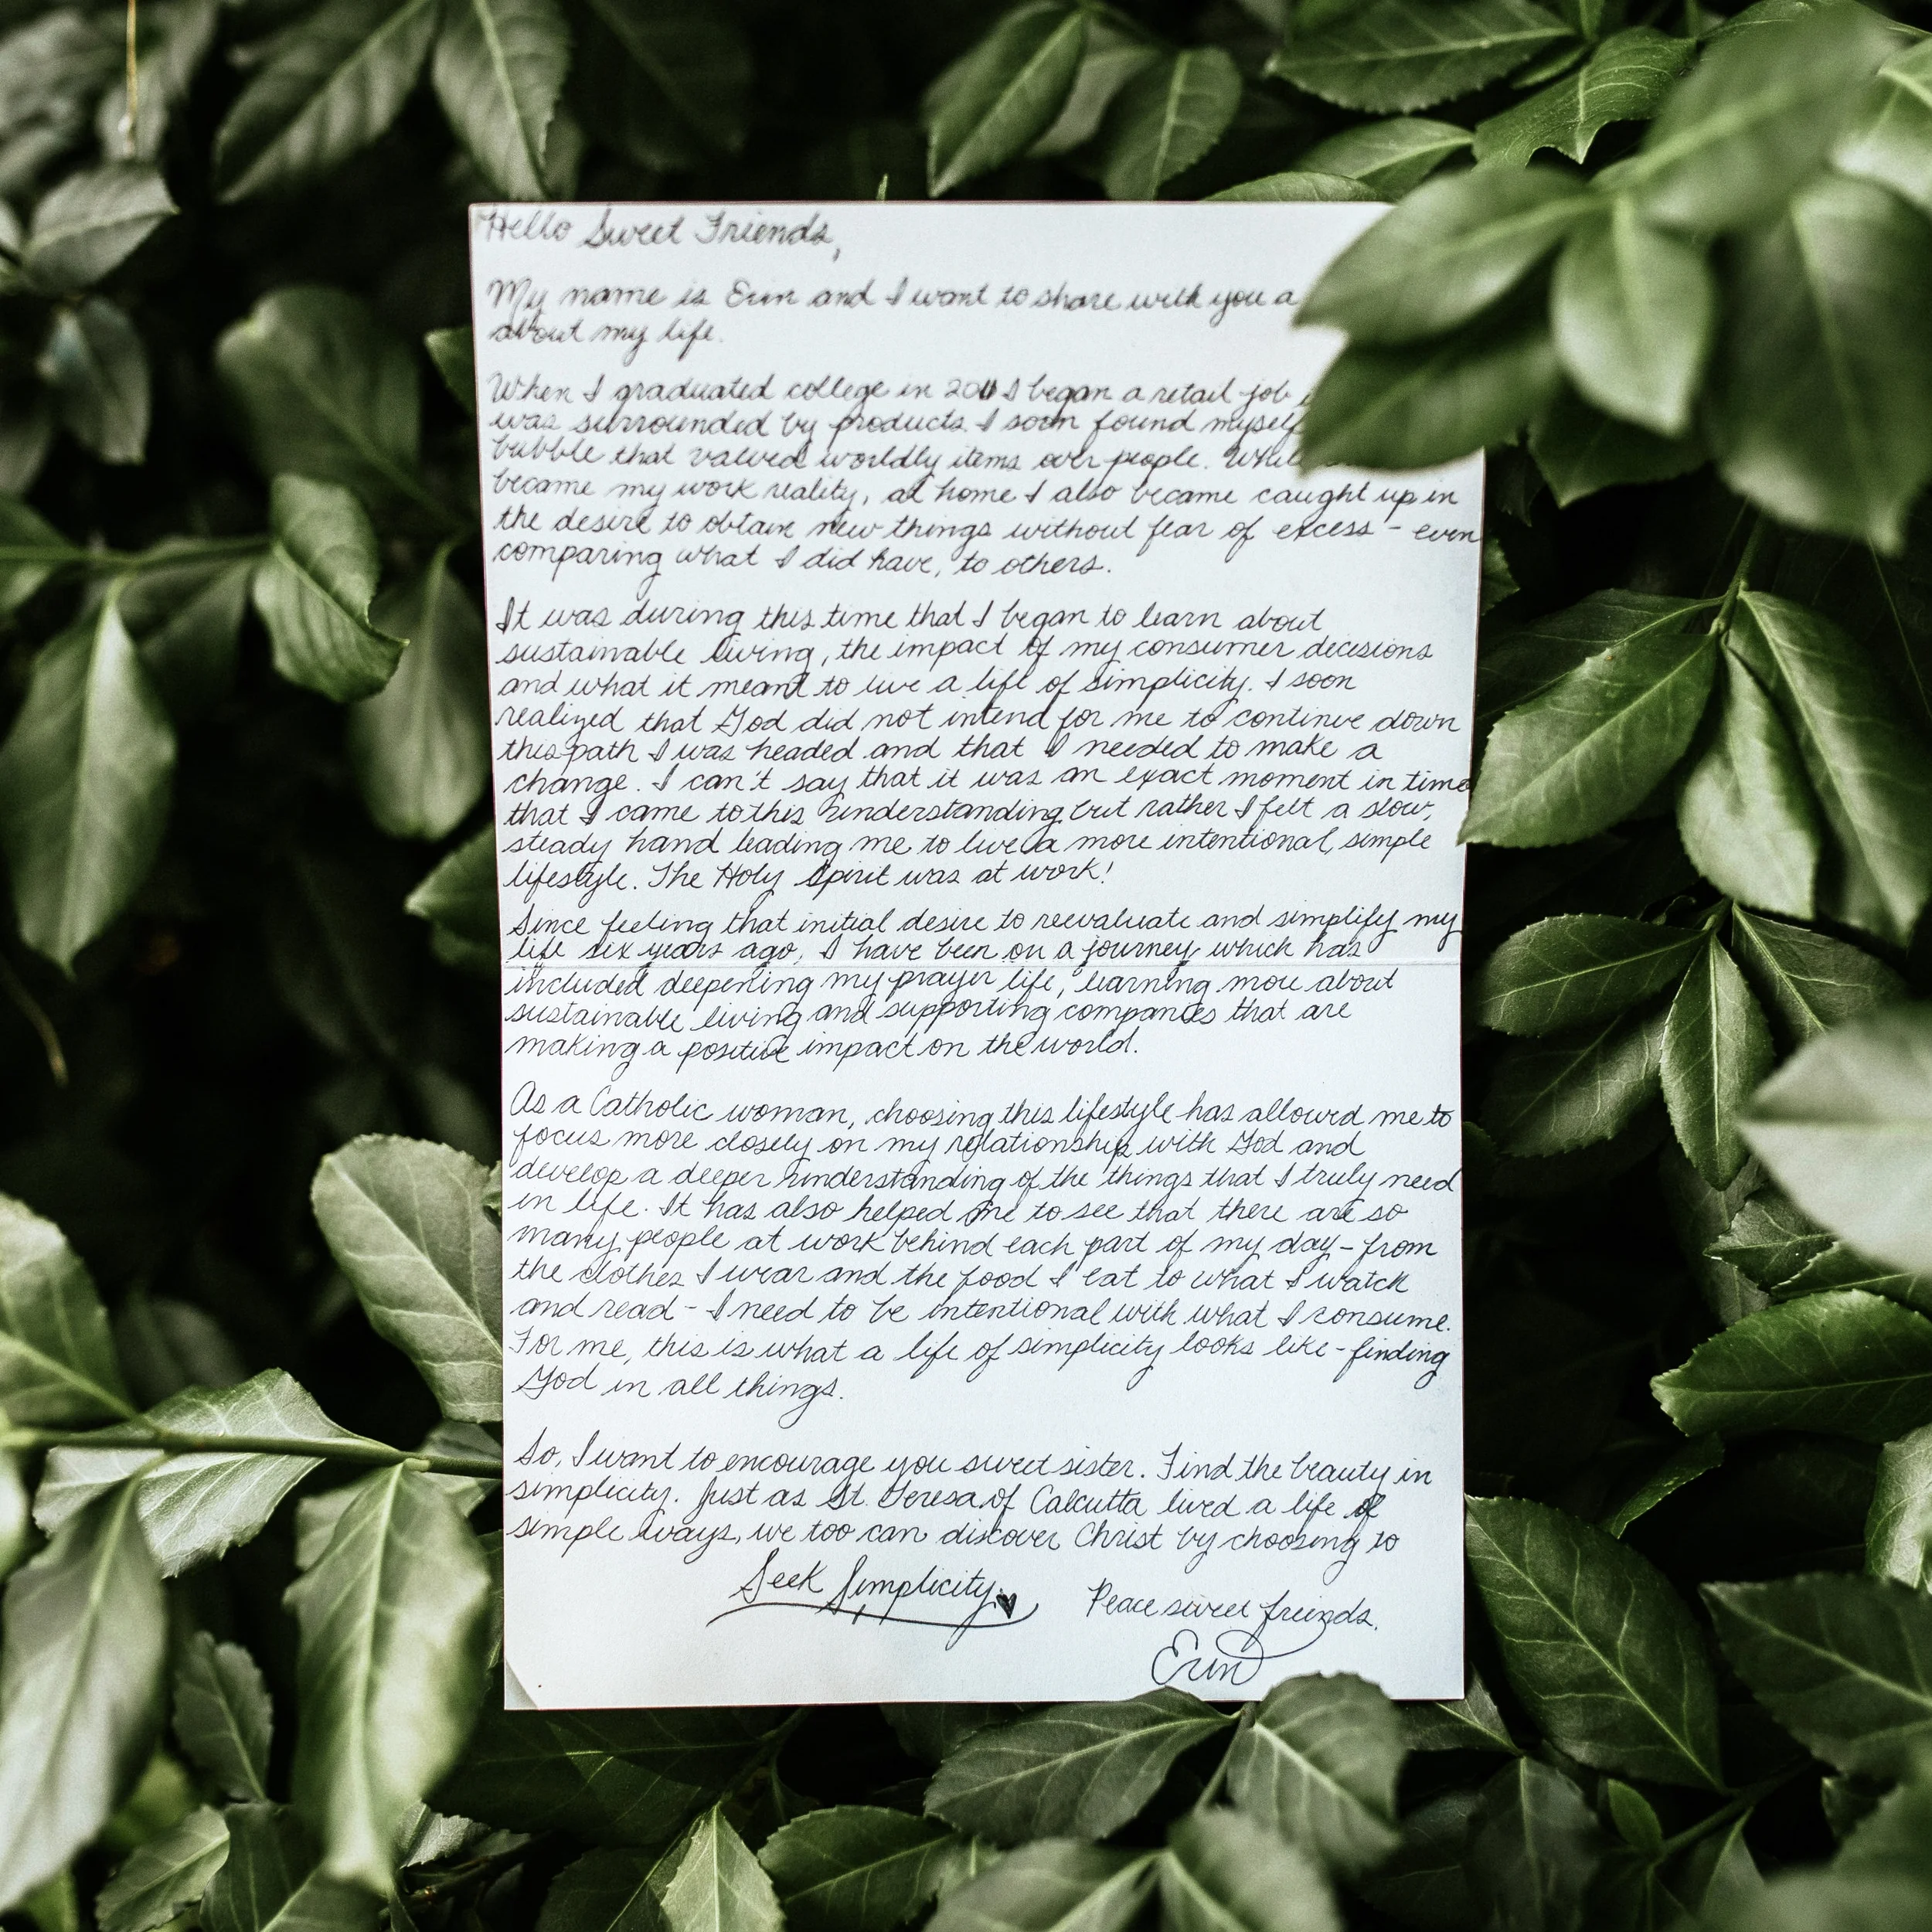 Hello Sweet Friends,
My name is Erin and I want to share with you a
about my life.
When I graduated college in 2011 I began a retail job
was surrounded by products. I soon found myself
bubble that valued worldly items over people.
became my work reality, at home I also became caught up in
the desire to obtain new things without fear of excess - even
comparing what I did have, to others.
It was during this time that I began to learn about
sustainable living, the impact of my consumer decisions
and what it meant to live a life of simplicity. I soon
realized that God did not intend for me to continue down
this path I was headed and that I needed to make a
change. I can't say that it was an exact moment in time
that I came to this understanding but rather I felt a slow,
steady hand leading me to live a more intentional, simple
lifestyle. The Holy Spirit was at work!
Since feeling that initial desire to reevaluate and simplify my
life six years ago, I have been on a journey which has
included deepening my prayer life, learning more about
sustainable living and supporting companies that are
making a positive impact on the world.
As a Catholic woman, choosing this lifestyle has allowed me to
focus more closely on my relationship with God and
develop a deeper understanding of the things that I truly need
in life. It has also helped me to see that there are so
many people at work behind each part of my day - from
the clothes I wear and the food I eat to what I watch
and read - I need to be intentional with what I consume.
For me, this is what a life of simplicity looks like - finding
God in all things.
So, I want to encourage you sweet sister. Find the beauty in
simplicity. Just as St. Teresa of Calcutta lived a life of
simple ways, we too can discover Christ by choosing to
Seek Simplicity.
Peace sweet friends,
Erin